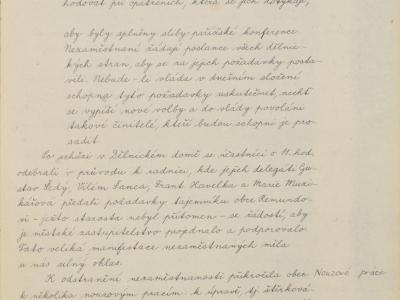 hodovat při opatřeních, která se jich dotýkají,
aby byly splněny sliby pařížské konference.
Nezaměstnaní žádají poslance všech dělnic-
kých stran, aby se za jejich požadavky posta-
vili. Nebude-li vláda v dnešním složení
schopna tyto požadavky uskutečnit, nechť
se vypíší nové volby a do vlády povoláni
takoví činitelé, kteří budou schopni je pro-
sadit.
Po schůzi v Dělnickém domě se účastníci o 11. hod.
odebrali v průvodu k radnici, kde jejich delegáti Gu-
stav Šedý, Vilém Vaněk, Frant. Havelka a Marie
předali požadavky tajemníku obce
- ježto starosta nebyl přítomen - se žádostí, aby
je městské zastupitelstvo projednalo a podporovalo.
Tato veliká manifestace nezaměstnaných měla
u nás silný ohlas.
K odstranění nezaměstnanosti přikročila obec Nouzové práce
k několika nouzovým pracím: k úpravě, tj. štěrková-